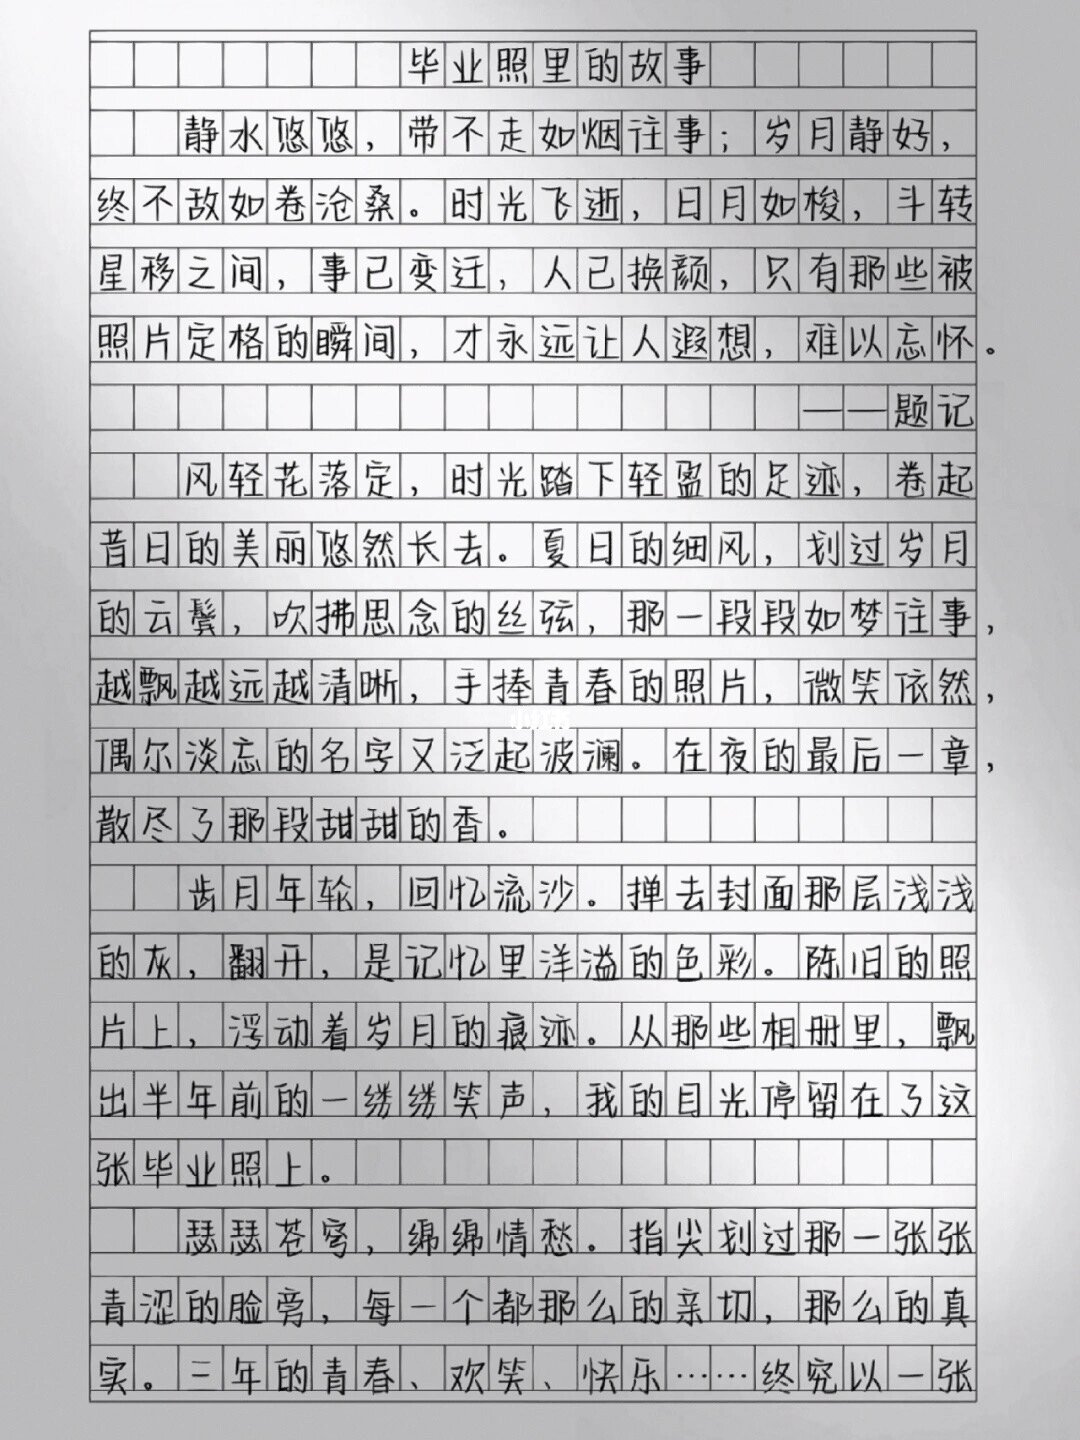 毕业照里的故事
静水悠悠，带不走如烟往事；岁月静好，
终不敌如卷沧桑。时光飞逝，日月如梭，斗转
星移之间，事已变迁，人已换颜，只有那些被
照片定格的瞬间，才永远让人遐想，难以忘怀。
——题记
风轻花落定，时光踏下轻盈的足迹，卷起
昔日的美丽悠然长去。夏日的细风，划过岁月
的云鬓，吹拂思念的丝弦，那一段段如梦往事，
越飘越远越清晰，手捧青春的照片，微笑依然，
偶尔淡忘的名字又泛起波澜。在夜的最后一章，
散尽了那段甜甜的香。
岁月年轮，回忆流沙。掸去封面那层浅浅
的灰，翻开，是记忆里洋溢的色彩。陈旧的照
片上，浮动着岁月的痕迹。从那些相册里，飘
出半年前的一缕缕笑声，我的目光停留在了这
张毕业照上。
瑟瑟苍穹，绵绵情愁。指尖划过那一张张
青涩的脸旁，每一个都那么的亲切，那么的真
实。三年的青春、欢笑、快乐……终究以一张